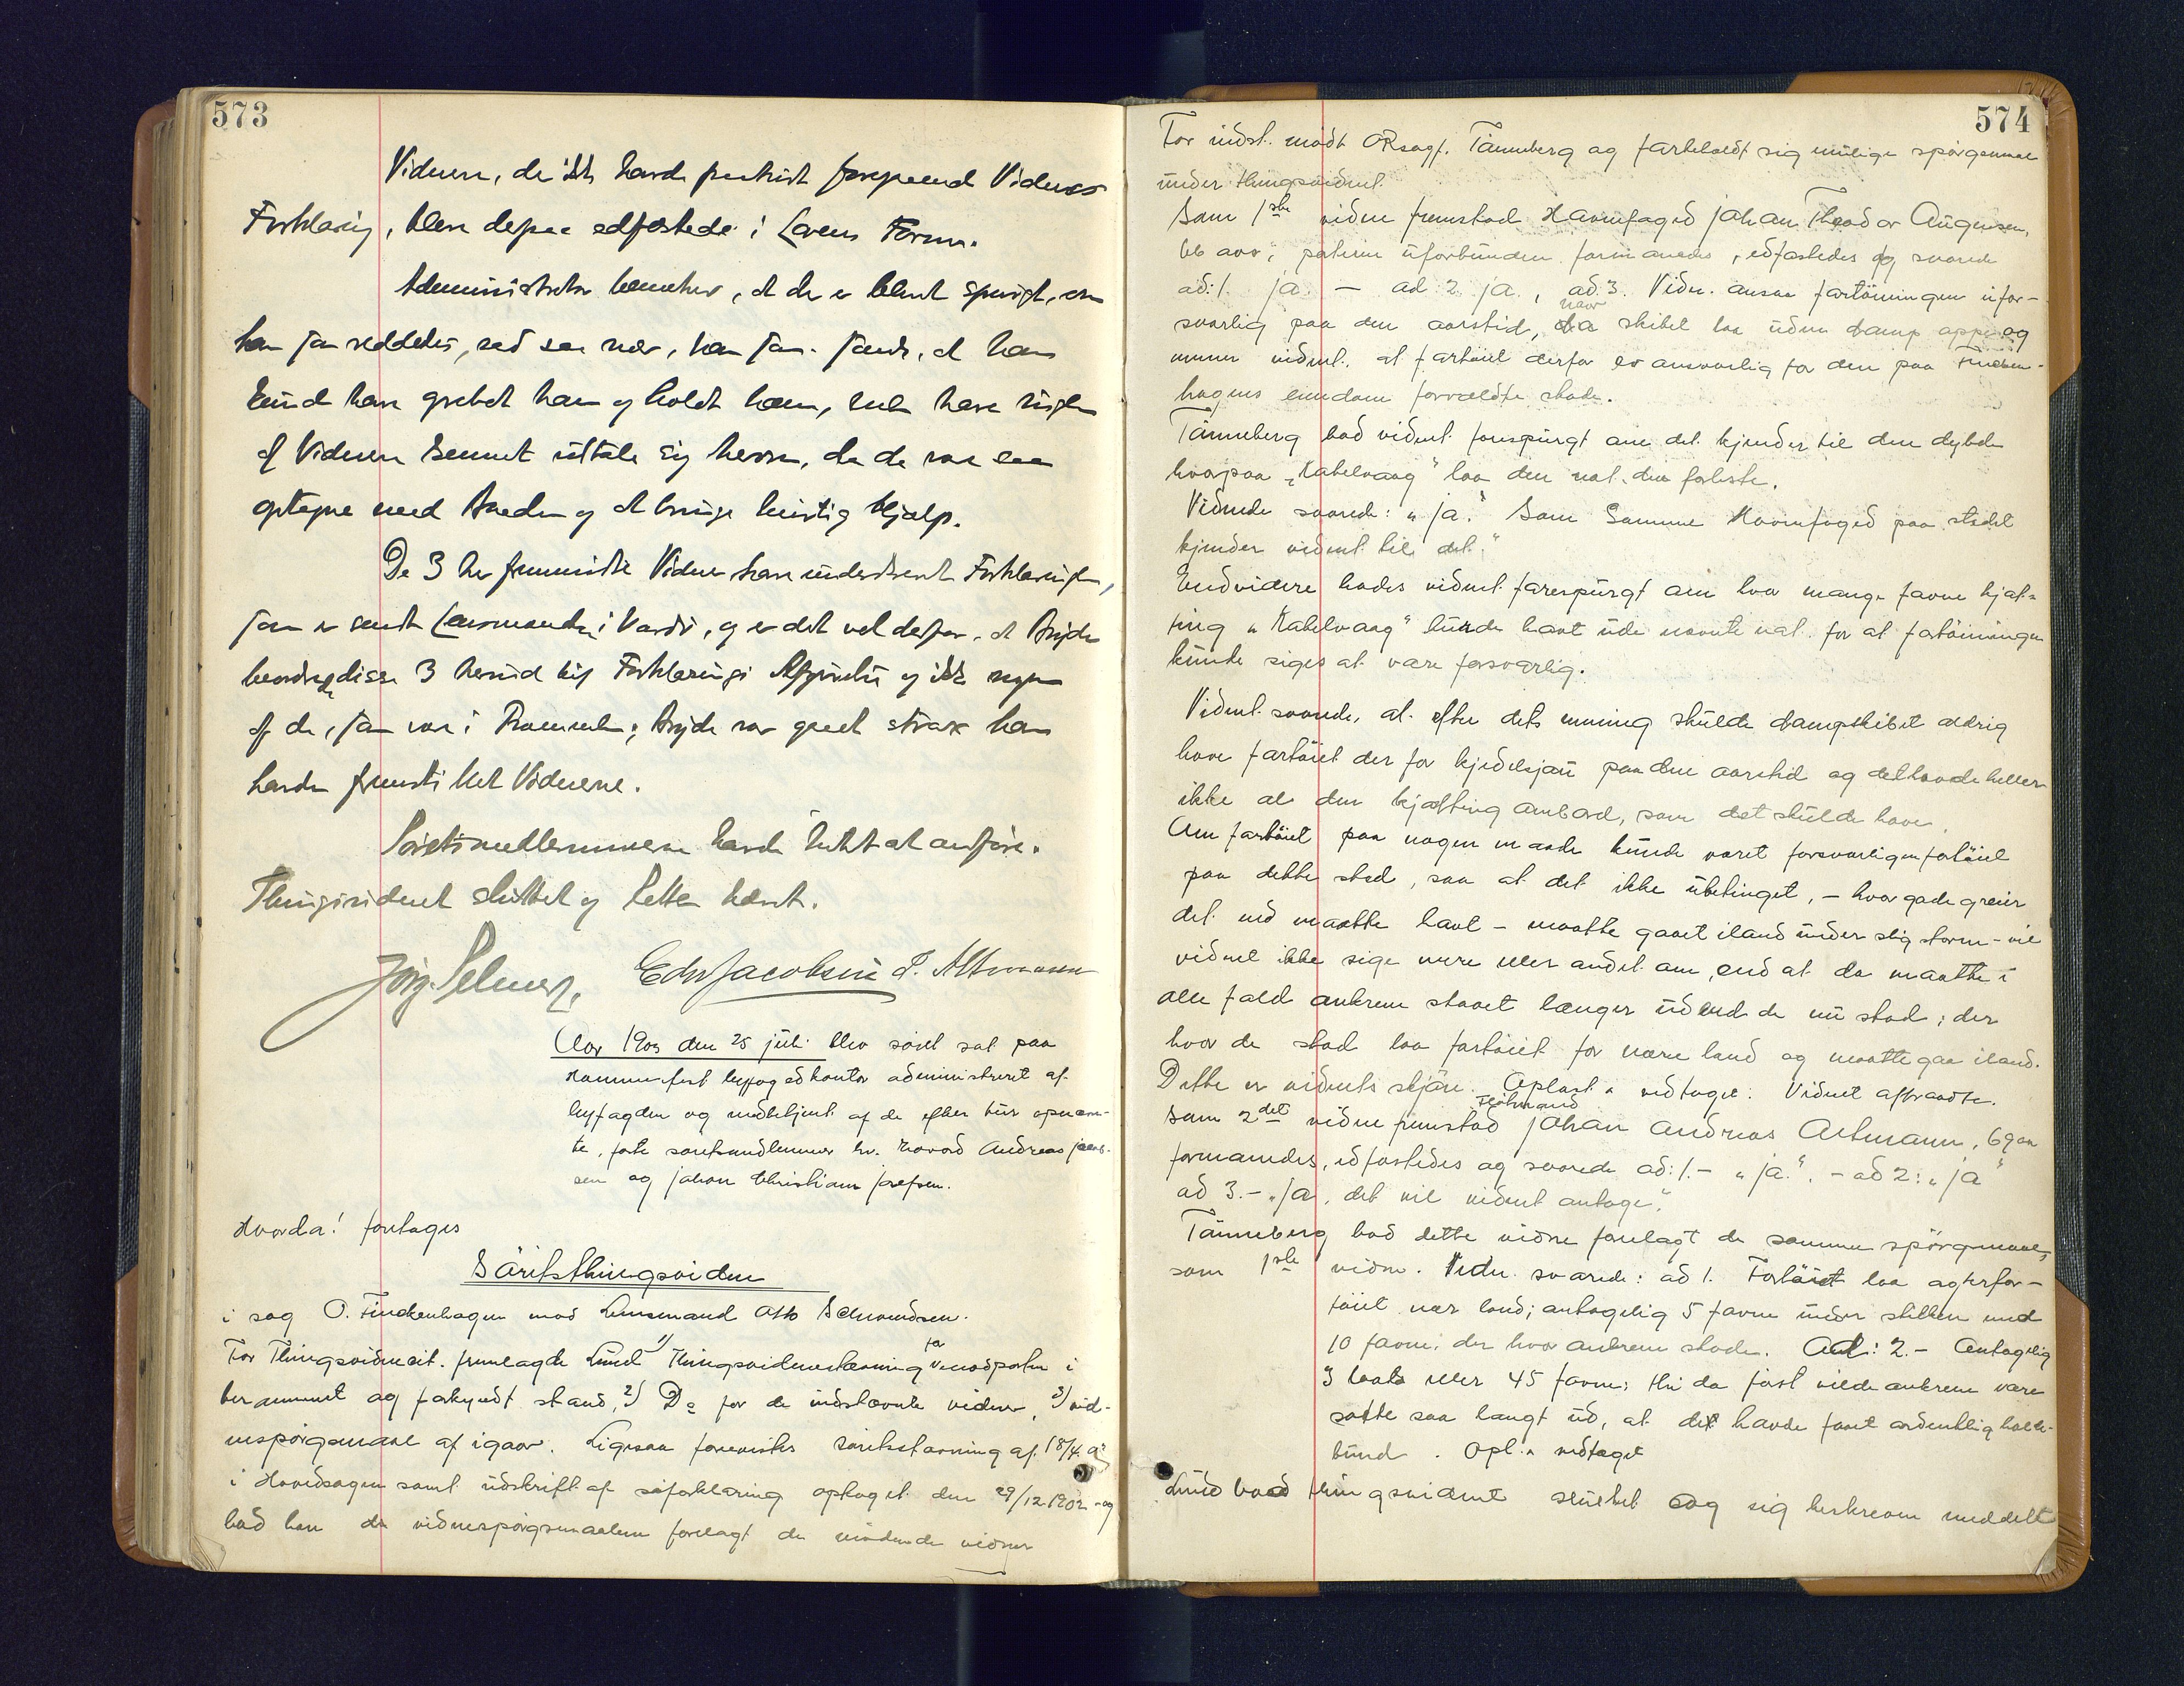 573
Vidnerne, de ikke havde paahørt foregaaend Vidnes
Forklaring, bleve derpaa edfæstede i Lovens Form.
Administrator bemærker, at der er blevet spurgt, om
han som reddedes, sad saa nær, ham som sank, at han
kunde have grebet ham og holdt ham, uden have nogen
af Vidnerne kunnet udtale sig herom, da de var saa
optagne med Baaden og at bringe hurtig Hjælp.
De 3 her fremmødte Vidner have underskrevet Forklaringen,
som er sendt Lensmanden i Vardø, og er det vel derfor, at Bryde
beordrede disse 3 herind til Forklarings Afgivelse og ikke nogen
af de, som var i Prammen; Bryde var gaaet strax han
havde fremstillet Vidnerne.
Søretsmedlemmerne havde Intet at anføre.
Thingsvidnet sluttet og Retten hævet.
Jørg. Selmer, Edv Jacobsen J. Altmann
Aar 1903 den 25 juli blev søret sat paa
Hammerfest byfogedkontor administreret af
byfogden og meddetjent af de efter tur opnævn-
te, faste søretsmedlemmer hr. Havard Andreas Jacob-
sen og Johan Christian Josefsen.
Hvorda! foretoges
Søretsthingsvidne
i sag O. Finckenhagen mod Lensmand Otto Schwendsen.
For Thingsvidnecit. fremlagde Lund 1) Thingsvidnestævning for modparten i
berammet og forkyndt stand, 2) Do for de indstævnte vidner, 3) vid-
nespørgsmaal af igaar. Ligesaa forevistes søretsstævning af 18/4 03
i Hovedsagen samt udskrift af søforklaring optaget den 29/12 1902 - og
bad han de vidnespørgsmaalene forelagt de mødende vidner
574
For indst. mødt ORsagf. Tønneberg og forbeholdt sig mulige spørgsmaal
under thingsvidnet.
Som 1ste vidne fremstod Havnefoged Johan Theodor Augensen,
66 aar; parterne uforbunden. formanedes, edfæstedes og svarede
ad: 1. ja. — ad 2 ja., ad 3. Vidn. ansaa fortøiningen ufor-
svarlig paa den aarstid, naar da skibet laa uden damp oppe og
mener vidnet. at fartøiet derfor er ansvarlig for den paa Fincken-
hagens eiendom forvoldte skade.
Tønneberg bad vidnet forespurgt om det kjender til den dybde
hvorpaa „Kabelvaag" laa den nat den forliste.
Vidnede svarede: „ja." Som Samme Havnefoged paa stedet
kjender vidnet til det."
Endvidere bades vidnet forespurgt om hvor mange favne kjæt-
ting „Kabelvaag" burde havt ude nævnte nat for at fortøiningen
kunde siges at være forsvarlig.
Vidnet svarede, at efter dets mening skulde dampskibet aldrig
have fortøiet der for kjedelsjau paa den aarstid og det havde heller
ikke al den kjætting ombord, som det skulde have.
Om fartøiet paa nogen maade kunde været forsvarligen fortøiet
paa dette sted, saa at det ikke ubetinget, – hvor gode greier
det end maatte havt – maatte gaaet iland under slig storm – vil
vidnet ikke sige mere eller andet om, end at da maatte i
alle fald ankrene staaet længer ud end de nu stod; der
hvor de stod laa fartøiet for nære land og maatte gaa iland.
Dette er vidnets skjøn. Oplæst & vedtaget. Vidnet aftraadte.
Som 2det vidne fremstod Flødmand Johan Andreas Altmann, 69 aar
formanedes, edfæstedes og svarede ad: 1.- „ja.". – ad 2: „ja"
ad 3. – „ja, det vil vidnet antage."
Tønneberg bad dette vidne forelagt de samme spørgsmaal,
som 1ste vidne. Vidn. svarede: ad 1. Fortøiet laa agterfor-
tøiet nær land; antagelig 5 favne under skuten med
10 favne; der hvor ankrene stode. Ad: 2. – Antagelig
3 laate eller 45 favne; thi da först vilde ankrene være
satte saa langt ud, at det havde faaet ordentlig holde-
bund. Opl. & vedtaget
Lund bad thingsvidnet sluttet og sig beskreven meddelt